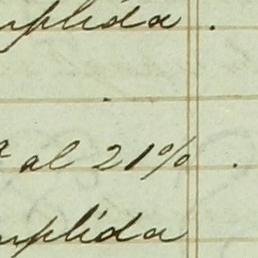 mplida .
a al 21%
mplida